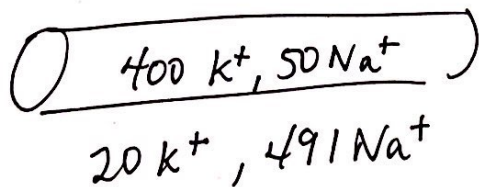 400 K⁺, 50 Na⁺
20 K⁺, 491 Na⁺